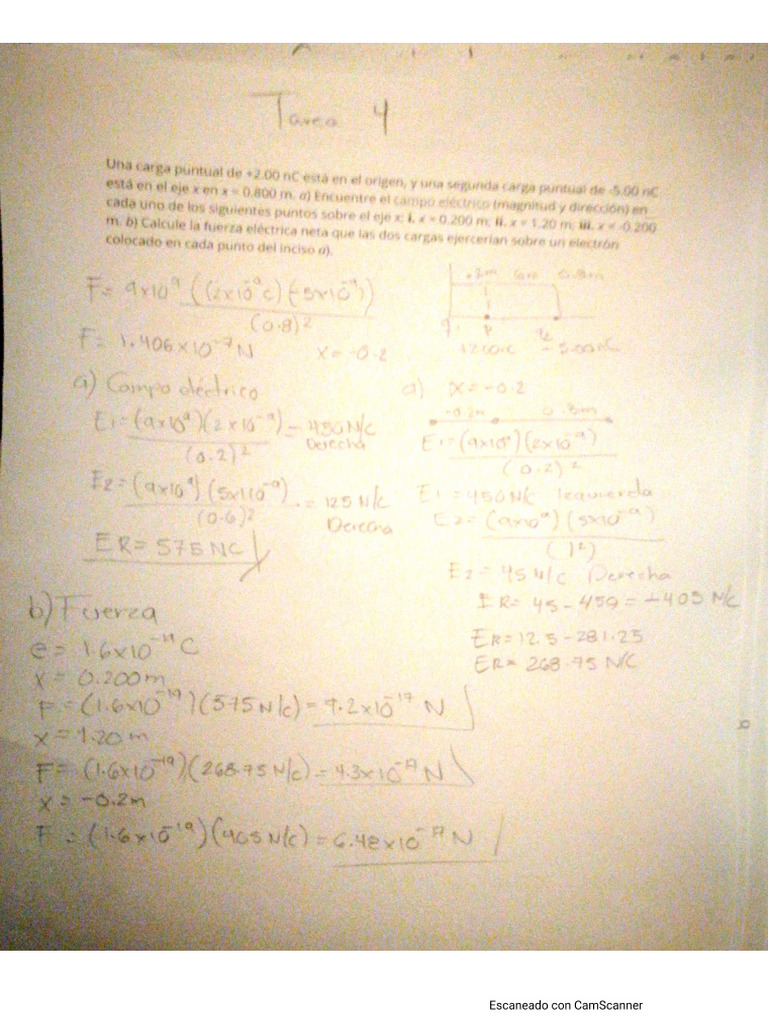 Tarea 4
Una carga puntual de +2.00 nC está en el origen, y una segunda carga puntual de -5.00 nC
está en el eje x en x = 0.800 m. a) Encuentre el campo eléctrico (magnitud y dirección) en
cada uno de los siguientes puntos sobre el eje x: i. x = 0.200 m; ii. x = 1.20 m; iii. x = -0.200
m. b) Calcule la fuerza eléctrica neta que las dos cargas ejercerían sobre un electrón
colocado en cada punto del inciso a).
F = 9x10⁹ ((2x10⁻⁹c)(-5x10⁻⁹))
(0.8)²
F = 1.406x10⁻⁷N x = -0.2
0.8m
P
+2.00nC -5.00nC
a) Campo eléctrico
E1 = (9x10⁹)(2x10⁻⁹) = 450N/C
(0.2)² Derecha
E2 = (9x10⁹)(5x10⁻⁹) = 125 N/C
(0.6)² Derecha
ER = 575 NC
a) x = -0.2
-0.2m 0.8m
E1 = (9x10⁹)(2x10⁻⁹)
(0.2)²
E1 = 450N/C Izquierda
E2 = (9x10⁹)(5x10⁻⁹)
(1²)
E2 = 45 N/C Derecha
ER = 45 - 450 = -405 N/C
ER = 12.5 - 281.25
ER = 268.75 N/C
b) Fuerza
e = 1.6x10⁻¹⁹ C
x = 0.200m
F = (1.6x10⁻¹⁹)(575N/c) = 9.2x10⁻¹⁷ N
x = 1.20m
F = (1.6x10⁻¹⁹)(268.75N/c) = 4.3x10⁻¹⁷ N
x = -0.2m
F = (1.6x10⁻¹⁹)(405N/c) = 6.48x10⁻¹⁷ N
Escaneado con CamScanner